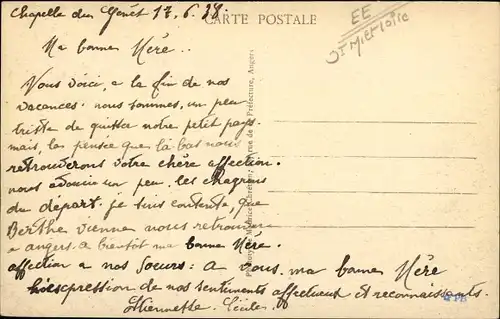 Chapelle du Genêt 17.6.38
CARTE POSTALE
EE
St M et Loire
Ma bonne Mère..
Vous voici, a la fin de nos
vacances. nous sommes, un peu
triste de quitter notre petit pays.
mais, les pensée que là bas nous
retrouverons votre chère affection.
nous adoucie un peu, les chagrins
du départ. je suis contente, que
Berthe vienne nous retrouver
a angers. a bientôt ma bonne Mère.
affection a nos Soeurs: a vous. ma bonne Mère
expression de nos sentiments affectueux et reconnaissants.
Cécile.
Préfecture, Angers